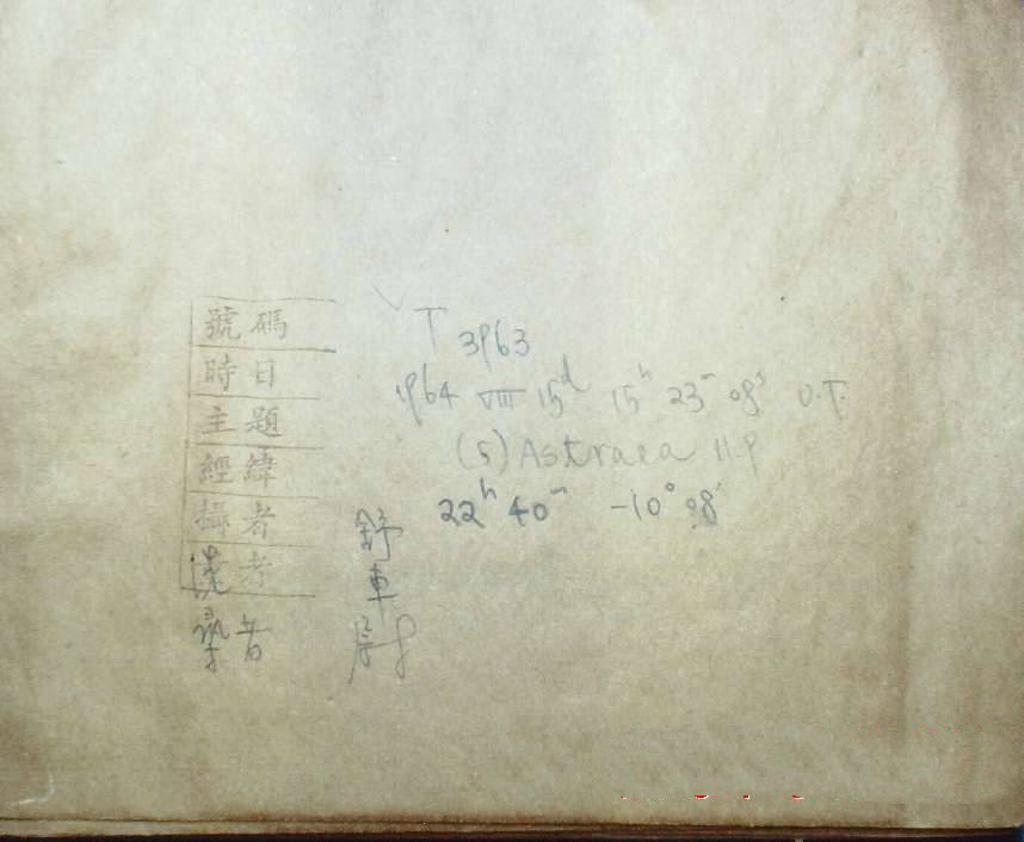 號碼 T 3963
時日 1964 VIII 15d 15h 23m 08s U.T.
主題 (5) Astraea H.P
經緯 22h 40m -10° 08'
攝者 舒
洗者 車
者